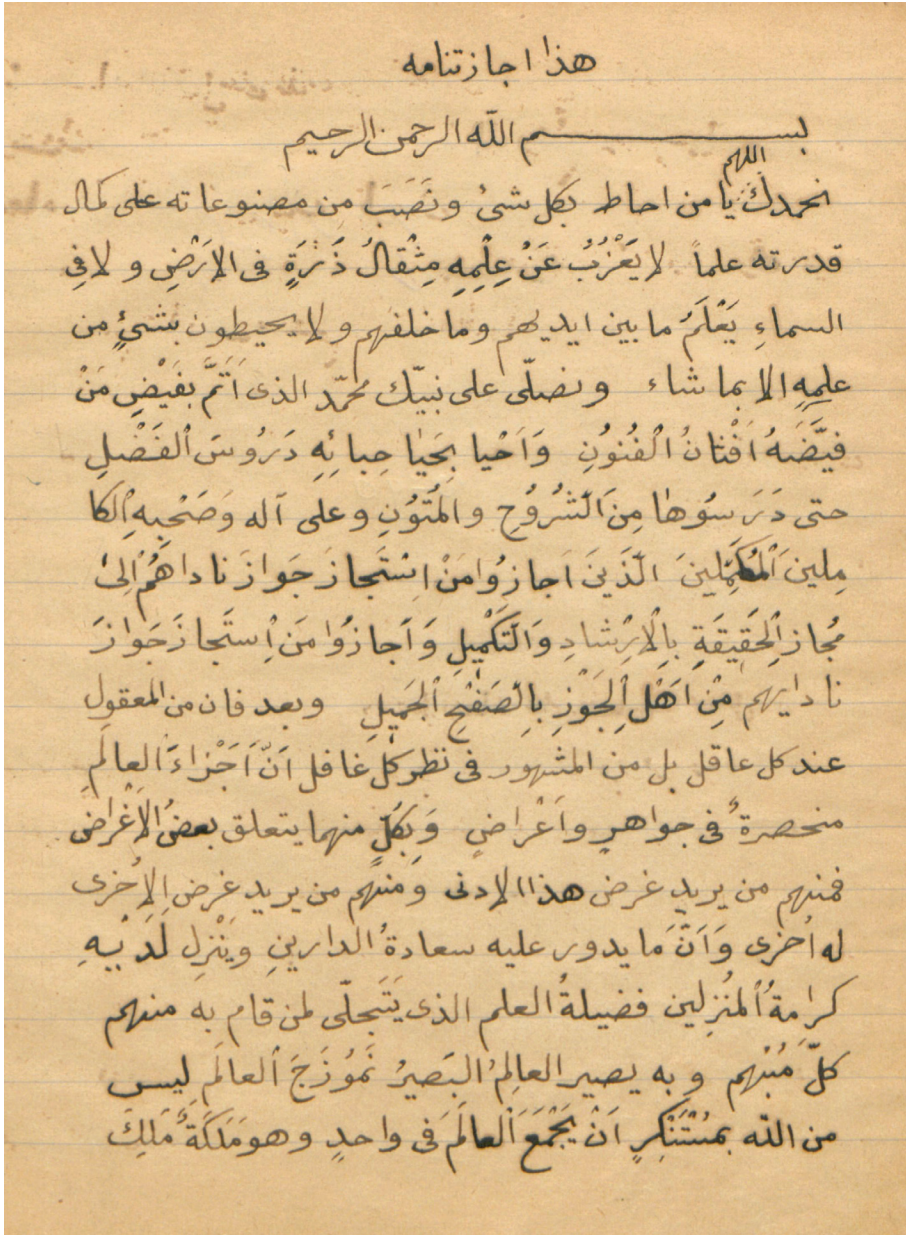 هذا اجازتنامه
بسم الله الرحمن الرحيم
نحمدك اللهم يا من احاط بكل شئ ونَصَبَ مِن مصنوعاته على كمال
قدرته علماً لا يَعْزُبُ عَنْ عِلْمِهِ مِثْقالُ ذَرَةٍ فى الارَضِ و لا فِى
السماءِ يَعْلَمُ ما بين ايديهم وما خلفهم و لا يحيطون بشئٍ من
علمِهِ الا بما شاء ونصلّى على نبيّك محمّد الذى اَتَمَّ بفَيْضِ مَنْ
فيَّضَهُ اَفْنانُ الْفُنُونِ وَاَحْيا بِحَيٰا حِبائِهِ دَرُوسَ الْفَضْلِ
حتى دَرَسُوها مِنَ الشُرُوُحِ والمُتُوُنِ وعلى آله وَصَحْبِهِ الْكا
مِلينَ الْمُكَمِّلينَ الّذَينَ اَجازوُا مَنْ اِسْتَجازَ جَوازَ ناداهُمْ اِلىٰ
مُجازِ الْحَقِيقَةِ بِالْاِرْشادِ وَالْتَكْمٖيلِ وَاَجازوُا مَن اِستَجازَ جَوازَ
نادايهم مِنْ اَهْلِ الْجَوْزِ بِالصَفْحِ الْجَمٖيلِ وبعد فان من المعقول
عند كل عاقل بل من المشهور فى نظر كل غافل اَنَّ اَجْزاءَ الْعالَمِ
منحصرةٌ فى جواهرٍ واَعْراضٍ وَبِكلٍّ منهما يتعلق بعضُ الاَغْراض
فمنهم من يريد غرض هذا الادنى ومنهم من يريد غرض الاُخرى
له اُخرى وَاَنَّ مَا يدور عليه سعادةُ الدارينِ ويَنْزِل لَدَيْهِ
كرامةُ الْمُنْزِلين فضيلةُ العلم الذى يَتَجلّى لمن قام به منهم
كلّ مُبْهم وبه يصير العالِمُ البَصيرُ نَمُوُزَجَ الْعالَمِ ليس
من الله بمسْتَنْكِرٍ اَنْ يَجْمَعَ الْعالَمَ فى واحدٍ وهو مَلَكَةٌ مَلِكَ